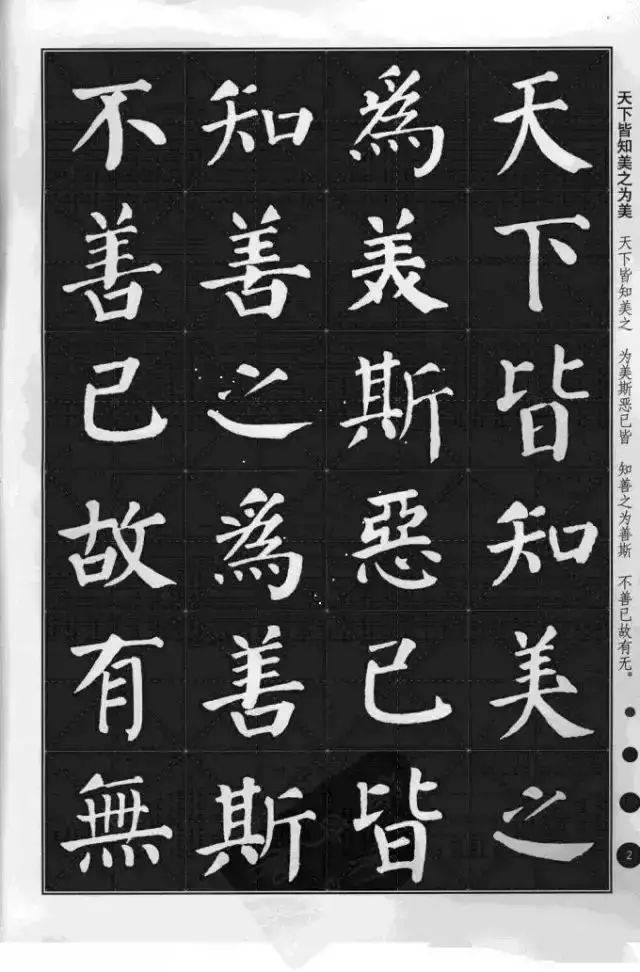 天下皆知美之
為美斯惡已皆
知善之為善斯
不善已故有無
天下皆知美之为美
天下皆知美之 为美斯恶已皆 知善之为善斯 不善已故有无。
2